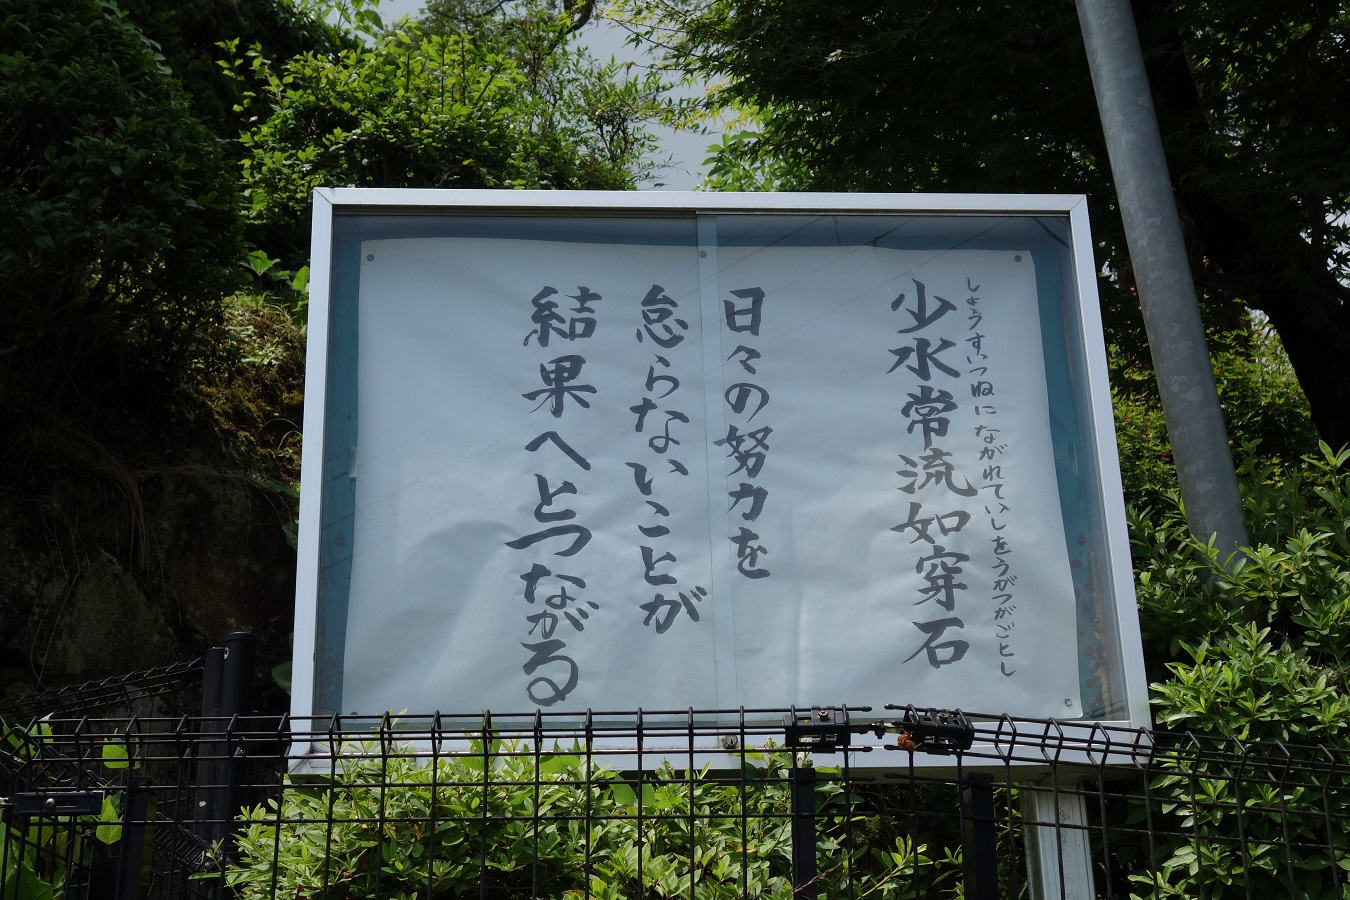 しょうすいつねにながれていしをうがつがごとし
少水常流如穿石
日々の努力を
怠らないことが
結果へとつながる